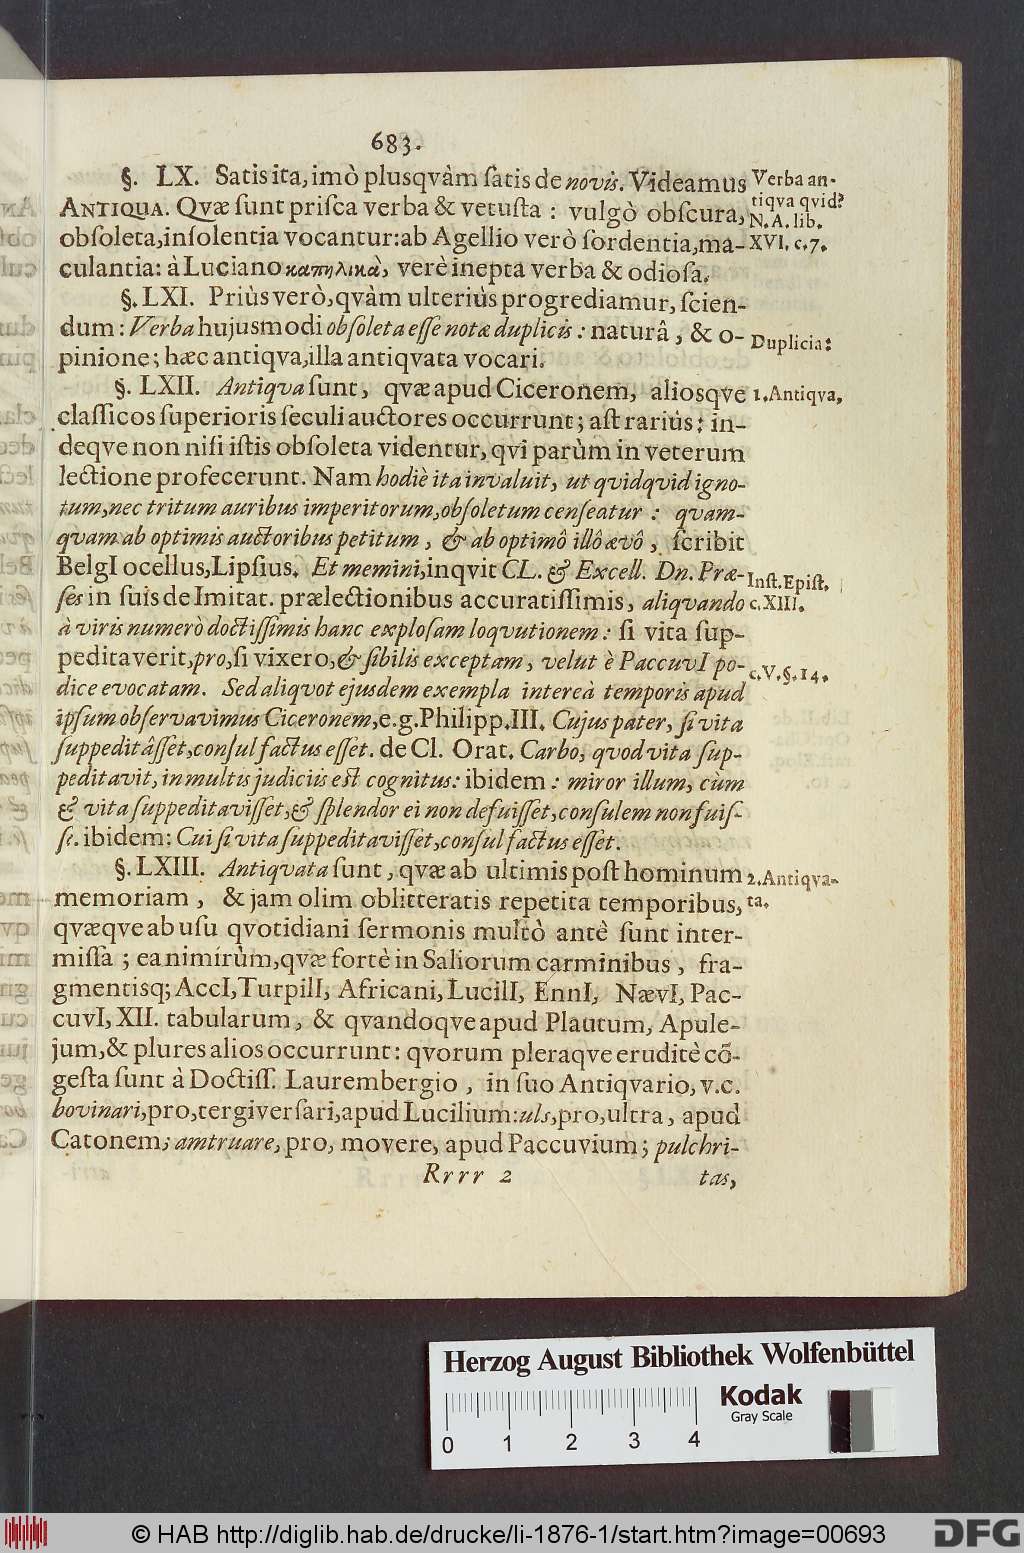 683.
§. LX. Satis ita, imò plusqvàm ſatis de novis. Videamus
ANTIQUA. Qvæ ſunt priſca verba & vetuſta : vulgò obſcura,
obſoleta, inſolentia vocantur: ab Agellio verò ſordentia, ma-
culantia: à Luciano καπηλικὰ, verè inepta verba & odioſa.
Verba an-
tiqva qvid?
N. A. lib.
XVI. c. 7.
§. LXI. Priùs verò, qvàm ulteriùs progrediamur, ſcien-
dum: Verba hujusmodi obſoleta eſſe notæ duplicis: naturâ, & o-
pinione; hæc antiqva, illa antiqvata vocari.
Duplicia:
§. LXII. Antiqva ſunt, qvæ apud Ciceronem, aliosqve
claſſicos ſuperioris ſeculi auctores occurrunt; aſt rariùs: in-
deqve non niſi iſtis obſoleta videntur, qvi parùm in veterum
lectione profecerunt. Nam hodiè ita invaluit, ut qvidqvid igno-
tum, nec tritum auribus imperitorum, obſoletum cenſeatur : qvam-
qvam ab optimis auctoribus petitum, & ab optimô illô ævô, ſcribit
BelgI ocellus, Lipſius. Et memini, inqvit CL. & Excell. Dn. Præ-
ſes in ſuis de Imitat. prælectionibus accuratiſſimis, aliqvando
à viris numerò doctiſſimis hanc exploſam loqvutionem: ſi vita ſup-
peditaverit, pro, ſi vixero, & ſibilis exceptam, velut è PaccuvI po-
dice evocatam. Sed aliqvot ejusdem exempla intereà temporis apud
ipſum obſervavimus Ciceronem, e.g. Philipp. III. Cujus pater, ſi vita
ſuppeditâſſet, conſul factus eſſet. de Cl. Orat. Carbo, quod vita ſup-
peditavit, in multis judiciis est cognitus: ibidem: miror illum, cùm
& vita ſuppeditaviſſet, & ſplendor ei non defuiſſet, conſulem non fuiſ-
ſe. ibidem: Cui ſi vita ſuppeditaviſſet, conſul factus eſſet.
1. Antiqva,
Inſt. Epiſt.
c. XIII.
c. V. §. 14.
§. LXIII. Antiqvata ſunt, qvæ ab ultimis poſt hominum
memoriam, & jam olim oblitteratis repetita temporibus,
qvæqve ab uſu qvotidiani ſermonis multò antè ſunt inter-
miſſa; ea nimirùm, qvæ fortè in Saliorum carminibus, fra-
gmentisq; AccI, TurpilI, Africani, LucilI, EnnI, NævI, Pac-
cuvI, XII. tabularum, & qvandoqve apud Plautum, Apule-
jum, & plures alios occurrunt: qvorum pleraqve eruditè cõ-
geſta ſunt à Doctiſſ. Laurembergio, in ſuo Antiqvario, v.c.
bovinari, pro, tergiverſari, apud Lucilium: uls, pro, ultra, apud
Catonem; amtruare, pro, movere, apud Paccuvium; pulchri-
2. Antiqva-
ta.
Rrrr 2 tas,
Herzog August Bibliothek Wolfenbüttel
Kodak
Gray Scale
0 1 2 3 4
© HAB http://diglib.hab.de/drucke/li-1876-1/start.htm?image=00693
DFG